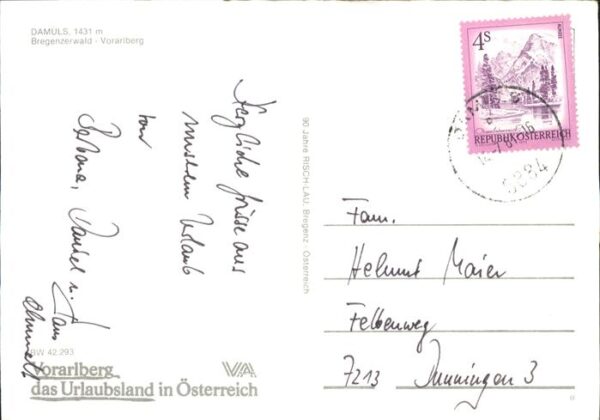 DAMÜLS, 1431 m
Bregenzerwald - Vorarlberg
Herzliche Grüsse aus
unserem Urlaub
von
Daniel u.
BW 42.293
Vorarlberg
das Urlaubsland in Österreich
VA
90 Jahre RISCH-LAU, Bregenz - Österreich
4S
REPUBLIK ÖSTERREICH
6884
Fam.
Helmut Maier
Felbenweg
7213 Dunningen 3